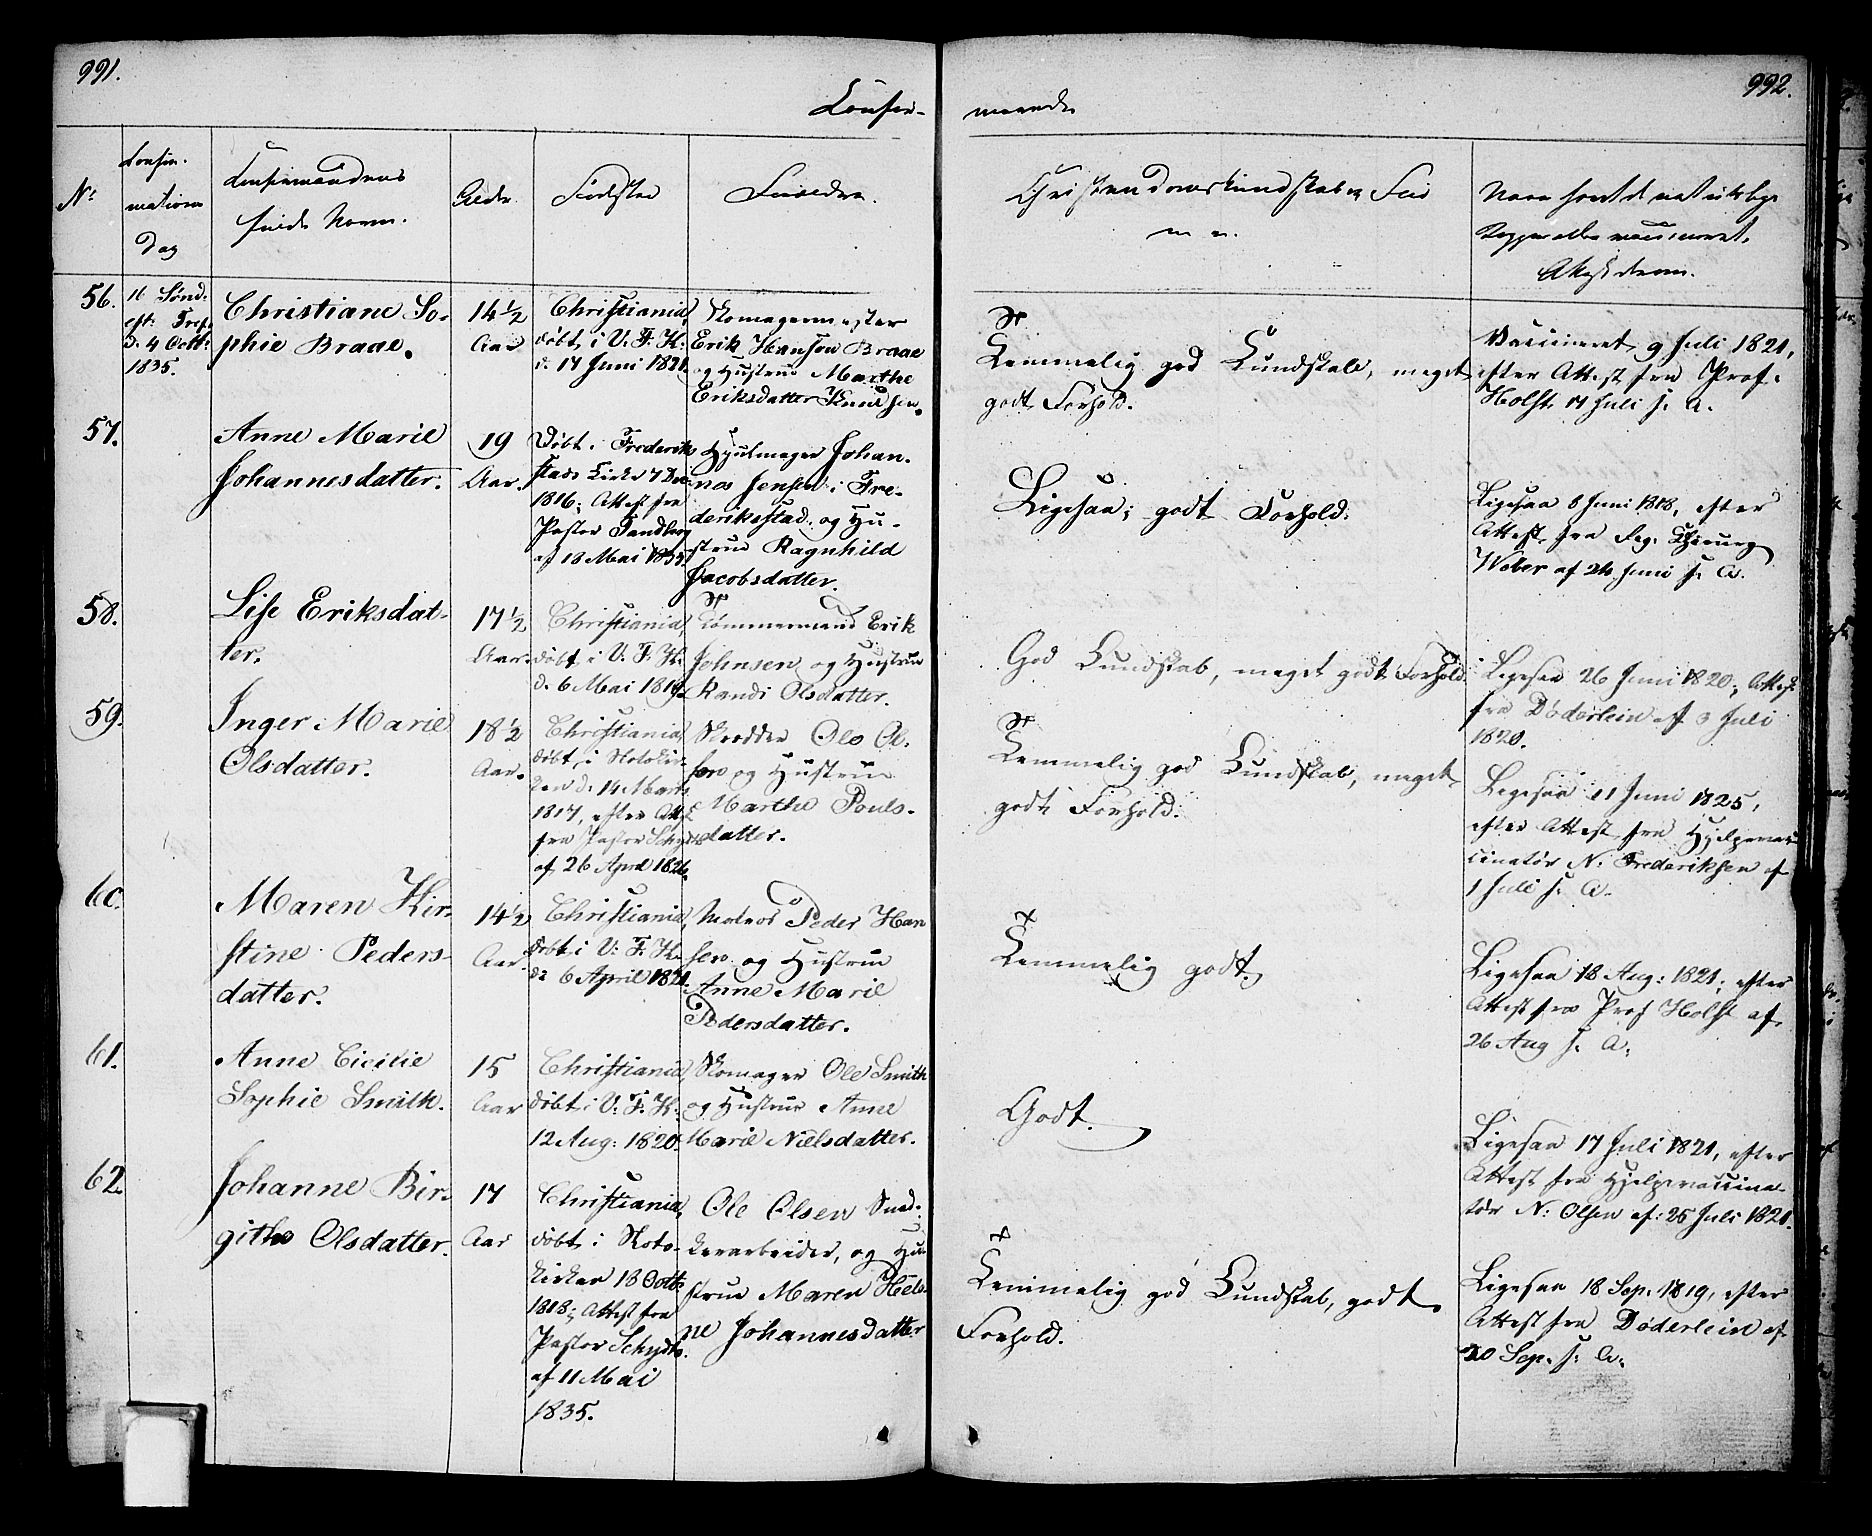 991.
992.
Confir-
merede
No
Confir-
mations
Dag
Confirmandens
fulde Navn.
Alder
Fødested
Forældre.
Christendomskundskab og For
Naar havt de naturlige
Kopper eller vaccineret.
Attest derom.
56.
16 Sønd:
eft: Tref.
d. 4 Octb:
1835.
Christiane So-
phie Braae.
14½
Aar
Christiania,
døbt i V. F. K.
d. 17 Juni 1821.
Skomagermester
Erik Hansen Braae
og Hustrue Marthe
Eriksdatter Knudsen.
Temmelig god Kundskab, meget
godt Forhold.
Vaccineret 9 Juli 1821,
efter Attest fra Prof.
Holst 17 Juli s. A.
57.
Anne Marie
Johannesdatter.
19
Aar.
Døbt i Frederik-
stads Kirke 7 Dec
1816; Attest fra
Pastor Tandberg
af 18 Mai 1835.
Hjulmager Johan-
nes Jensen i Fre-
derikstad og Hu-
strue Ragnhild
Jacobsdatter.
Ligesaa; godt Forhold.
Ligesaa 8 Juni 1818, efter
Attest fra Reg. Chirurg
Weber af 24 Juni s. A.
58.
Lise Eriksdat-
ter.
17½
Aar.
Christiania,
døbt i V. F. K.
d. 6 Mai 1819.
Tømmermand Erik
Johnsen og Hustrue
Randi Olsdatter.
God Kundskab, meget godt Forhold.
Ligesaa 26 Juni 1820; Attest
fra Døderlein af 3 Juli
1820.
59.
Inger Marie
Olsdatter.
18½
Aar.
Christiania,
døbt i Slotskir-
ken d. 14 Marts
1817, efter Att.
fra Pastor Schydtz
af 26 April 1826.
Skrædder Ole Ol-
sen og Hustrue
Marthe Pouls-
datter.
Temmelig god Kundskab, meget
godt Forhold.
Ligesaa 11 Juni 1825,
efter Attest fra Hjelpevac-
cinatør N. Frederiksen af
1 Juli s. A.
60.
Maren Kir-
stine Peders-
datter.
14½
Aar
Christiania,
døbt i V: F. K.
d. 6 April 1821.
Matros Peder Han
sen og Hustrue
Anne Marie
Pedersdatter.
Temmelig godt.
Ligesaa 18 Aug: 1821; efter
Attest fra Prof Holst af
26 Aug s. A.
61.
Anne Cicilie
Sophie Smith.
15
Aar
Christiania,
døbt i V. F. K.
12 Aug: 1820.
Skomager Ole Smith
og Hustrue Anne
Marie Nielsdatter.
Godt.
Ligesaa 17 Juli 1821, efter
Attest fra Hjelpevaccina-
tør N: Olsen af 25 Juli 1821.
62.
Johanne Bir-
githe Olsdatter.
17
Aar
Christiania,
døbt i Slots-
kirken 18 Octb:
1818; Attest fra
Pastor Schydtz
af 11 Mai
1835.
Ole Olsen Sned-
kerarbeider, og Hu-
strue Maren Hele-
ne Johannesdatter
Temmelig god Kundskab, godt
Forhold.
Ligesaa 18 Sep. 1819, efter
Attest fra Døderlein af
20 Sep. s. A.